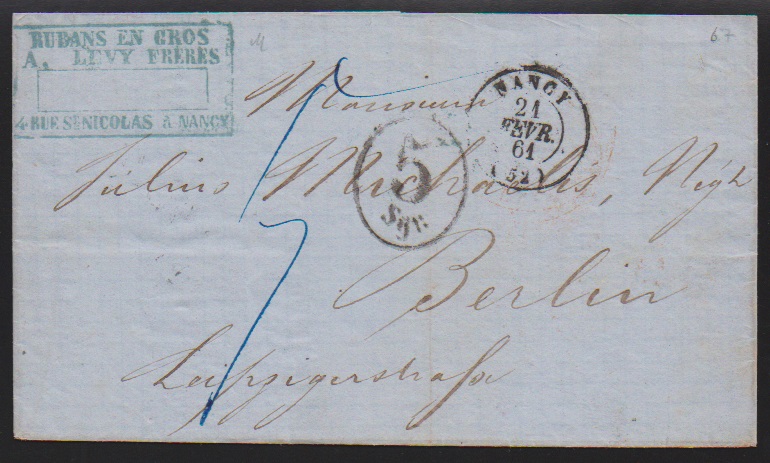 RUBANS EN GROS
A. LEVY FRÈRES
4 RUE St NICOLAS A NANCY
67
NANCY
21
FEVR.
61
(52)
5
Sgr.
Monsieur
Julius Michaelis,
Berlin
Leipzigerstraße